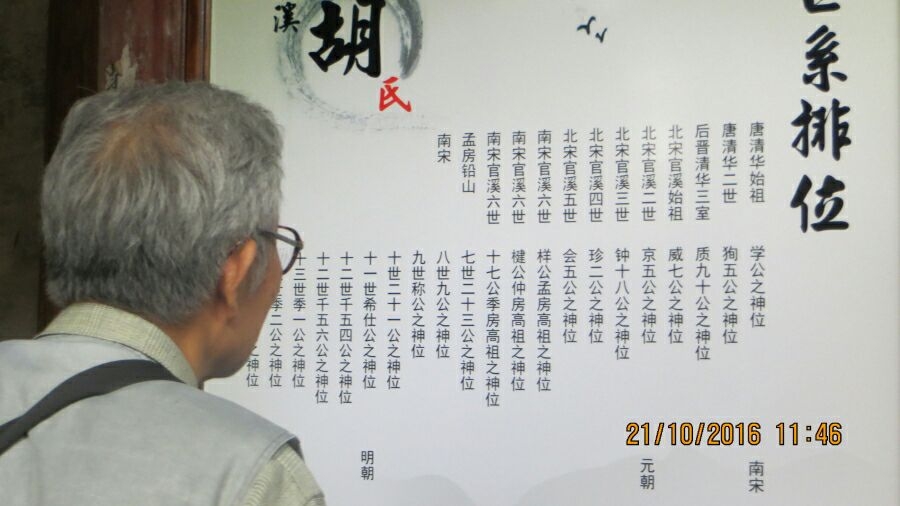 系排位
溪
胡
氏
唐清华始祖
学公之神位
唐清华二世
狥五公之神位
后晋清华三室
质九十公之神位
北宋官溪始祖
威七公之神位
北宋官溪二世
京五公之神位
北宋官溪三世
钟十八公之神位
北宋官溪四世
珍二公之神位
北宋官溪五世
会五公之神位
南宋官溪六世
样公孟房高祖之神位
南宋官溪六世
楗公仲房高祖之神位
南宋官溪六世
十七公季房高祖之神位
孟房铅山
七世二十三公之神位
南宋
八世九公之神位
九世称公之神位
十世二十一公之神位
十一世希仕公之神位
十二世千五四公之神位
十二世千五六公之神位
十三世季一公之神位
季二公之神位
之神位
南宋
元朝
明朝
21/10/2016 11:46